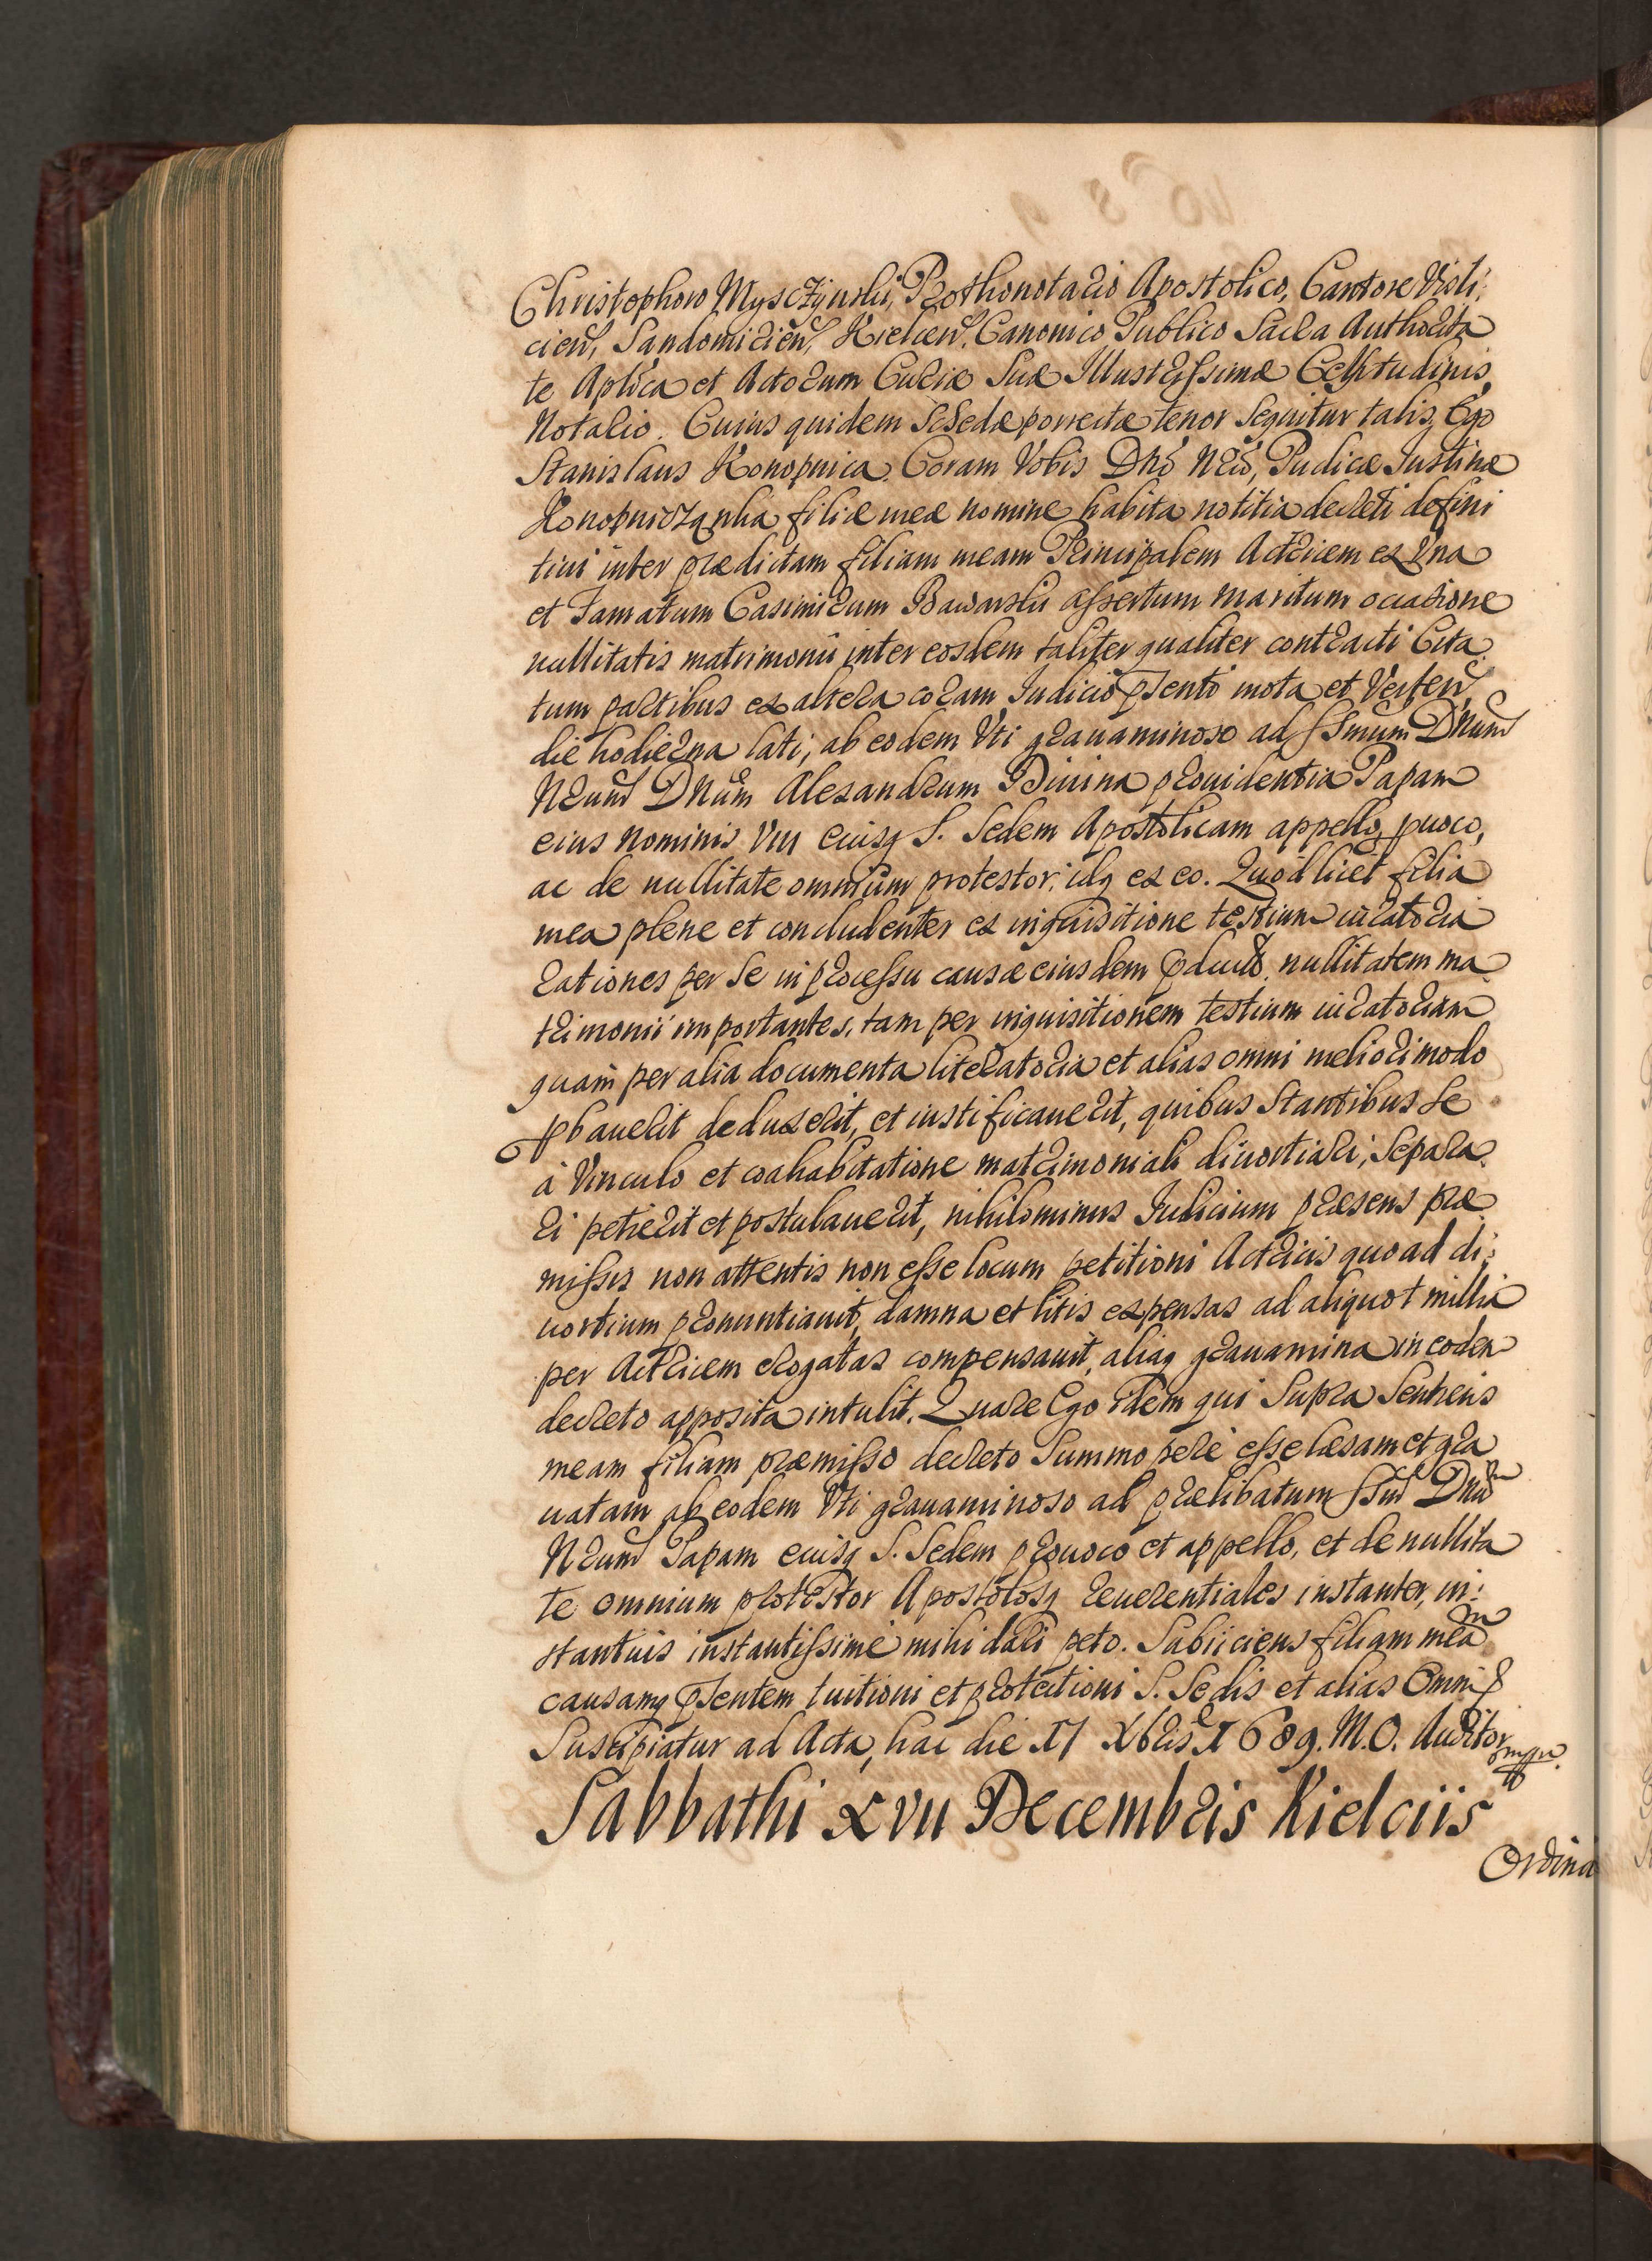 Christophoro Mysczynski, Prothonotario Apostolico, Cantore Visli:
cien, Sandomirien, Kielcen, Canonico, Publico Sacra Authorita
te Aplica et Actorum Curiæ Suæ Illustrissimæ Celsitudinis,
Notario. Cuius quidem Schedæ porrectæ tenor sequitur talis, Ego
Stanislaus Konopnica. Coram Vobis Dno Nro, Pudicæ Justinæ
Konopniczanka filiæ meæ nomine, habita notitia decreti defini
tiui inter prædictam filiam meam Principalem Actricem ex vna
et Famatum Casimirum Bawarski assertum maritum occasione
nullitatis matrimonii inter eosdem taliter qualiter contracti Cita
tum partibus ex altera coram Judicio psenti mota et Verten,
die hodierna lati, ab eodem Vti grauaminoso ad SSmum Dnum
Nrum Dnum Alexandrum Diuina prouidentia Papam
eius nominis VIII euisq S. Sedem Apostolicam appello, puoco,
ac de nullitate omnium protestor, idq ex eo. Quod licet filia
mea plene et concludenter ex inquisitione testium iuratoria
rationes per se in processu causæ eiusdem pduct, nullitatem ma
trimonii importantes, tam per inquisitionem testium iuratoriam
quam per alia documenta literatoria et alias omni meliori modo
pbauerit deduxerit, et iustificauerit, quibus Stantibus se
à Vinculo et coahabitatione matrimoniali diuortiari, Separa
ri petierit et postulauerit, nihilominus Judicium præsens præ
missis non attentis non esse locum petitioni Actricis quoad di:
uortium pronuntiauit, damna et litis expensas ad aliquot millia
per Actricem erogatas compensauit, aliaq grauamina in eodem
decreto apposita intulit. Quare Ego idem qui Supra Sentiens
meam filiam præmisso decreto Summo pere esse læsam et gra
uatam ab eodem Vti grauaminoso ad prælibatum SSm Dnum
Nrum Papam euisq S. Sedem prouoco et appello, et de nullita
te omnium protestor Apostolosq reuerentiales instanter, in:
stantius instantissime mihi dari peto. Subiiciens filiam meam
causamq psentem tuitioni et protectioni S. Sedis et alias Omni
Suscipiatur ad Acta, hac die 17 Xbris 1689. M.O. Auditor
mppa
Sabbathi XVII Decembris Kielciis
Ordina